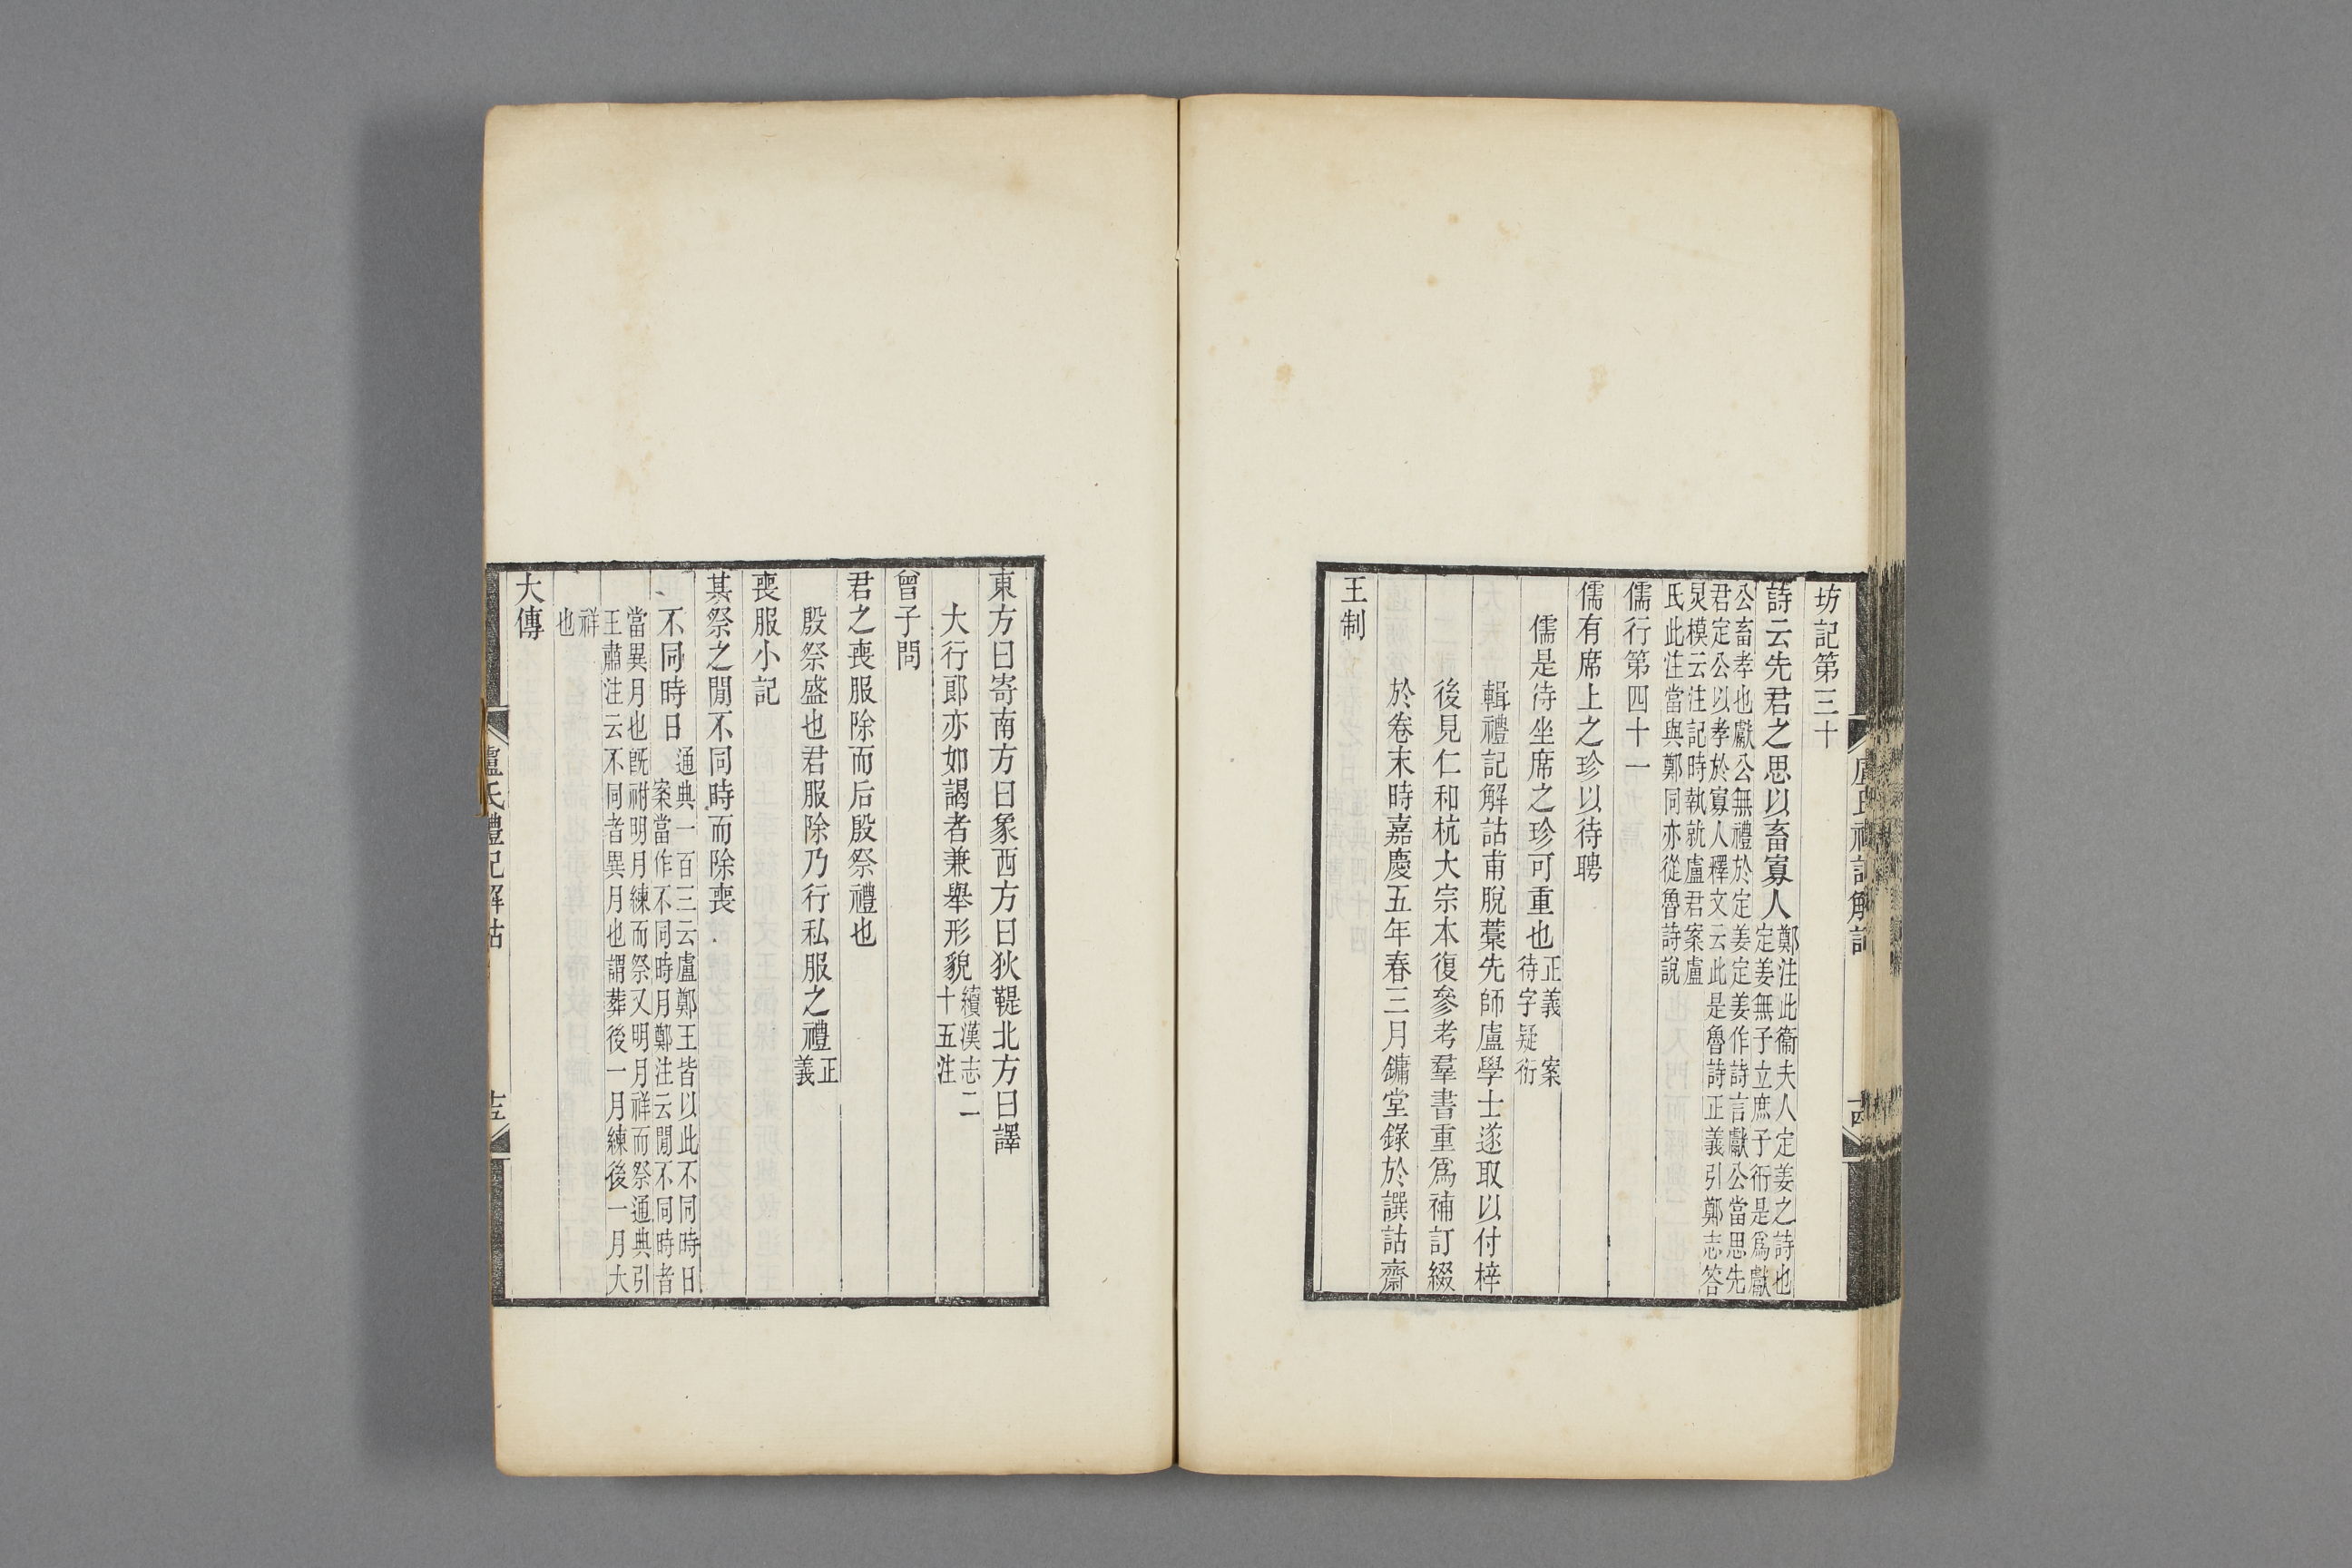 坊記第三十
詩云先君之思以畜寡人鄭注此衞夫人定姜之詩也
定姜無子立庶子衎是爲獻
公畜孝也獻公無禮於定姜定姜作詩言獻公當思先
君定公以孝於寡人釋文云此是魯詩正義引鄭志答
炅模云注記時執就盧君案盧
氏此注當與鄭同亦從魯詩說
儒行第四十一
儒有席上之珍以待聘
儒是待坐席之珍可重也正義案
待字疑衍
輯禮記解詁甫脫藳先師盧學士遂取以付梓
後見仁和杭大宗本復參考羣書重爲補訂綴
於卷末時嘉慶五年春三月鏞堂錄於譔詁齋
王制
東方曰寄南方曰象西方曰狄鞮北方曰譯
大行郎亦如謁者兼舉形貌續漢志二
十五注
曾子問
君之喪服除而后殷祭禮也
殷祭盛也君服除乃行私服之禮正
義
喪服小記
其祭之閒不同時而除喪
不同時日通典一百三云盧鄭王皆以此不同時日
案當作不同時月鄭注云閒不同時者
當異月也旣祔明月練而祭又明月祥而祭通典引
王肅注云不同者異月也謂葬後一月練後一月大
祥
也
大傳
盧氏禮記解詁